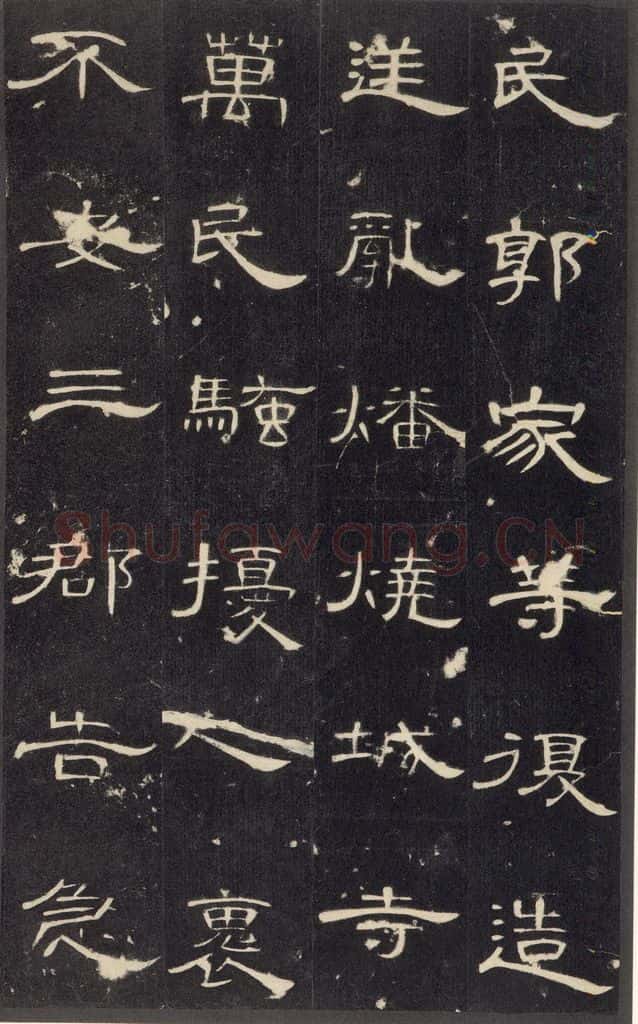 民郭家等復造
逆亂燔燒城寺
萬民騷擾人褱
不安三郡告急
Shufawang.CN